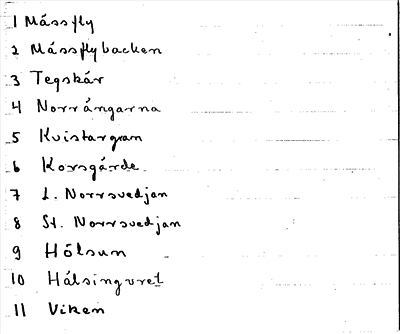 1 Mássfly
2 Mássflybacken
3 Tegskár
4 Norrángarna
5 Kvistargran
6 Korsgárde
7 L. Norrsvedjan
8 St. Norrsvedjan
9 Hólsun
10 Hálsingvret
11 Viken